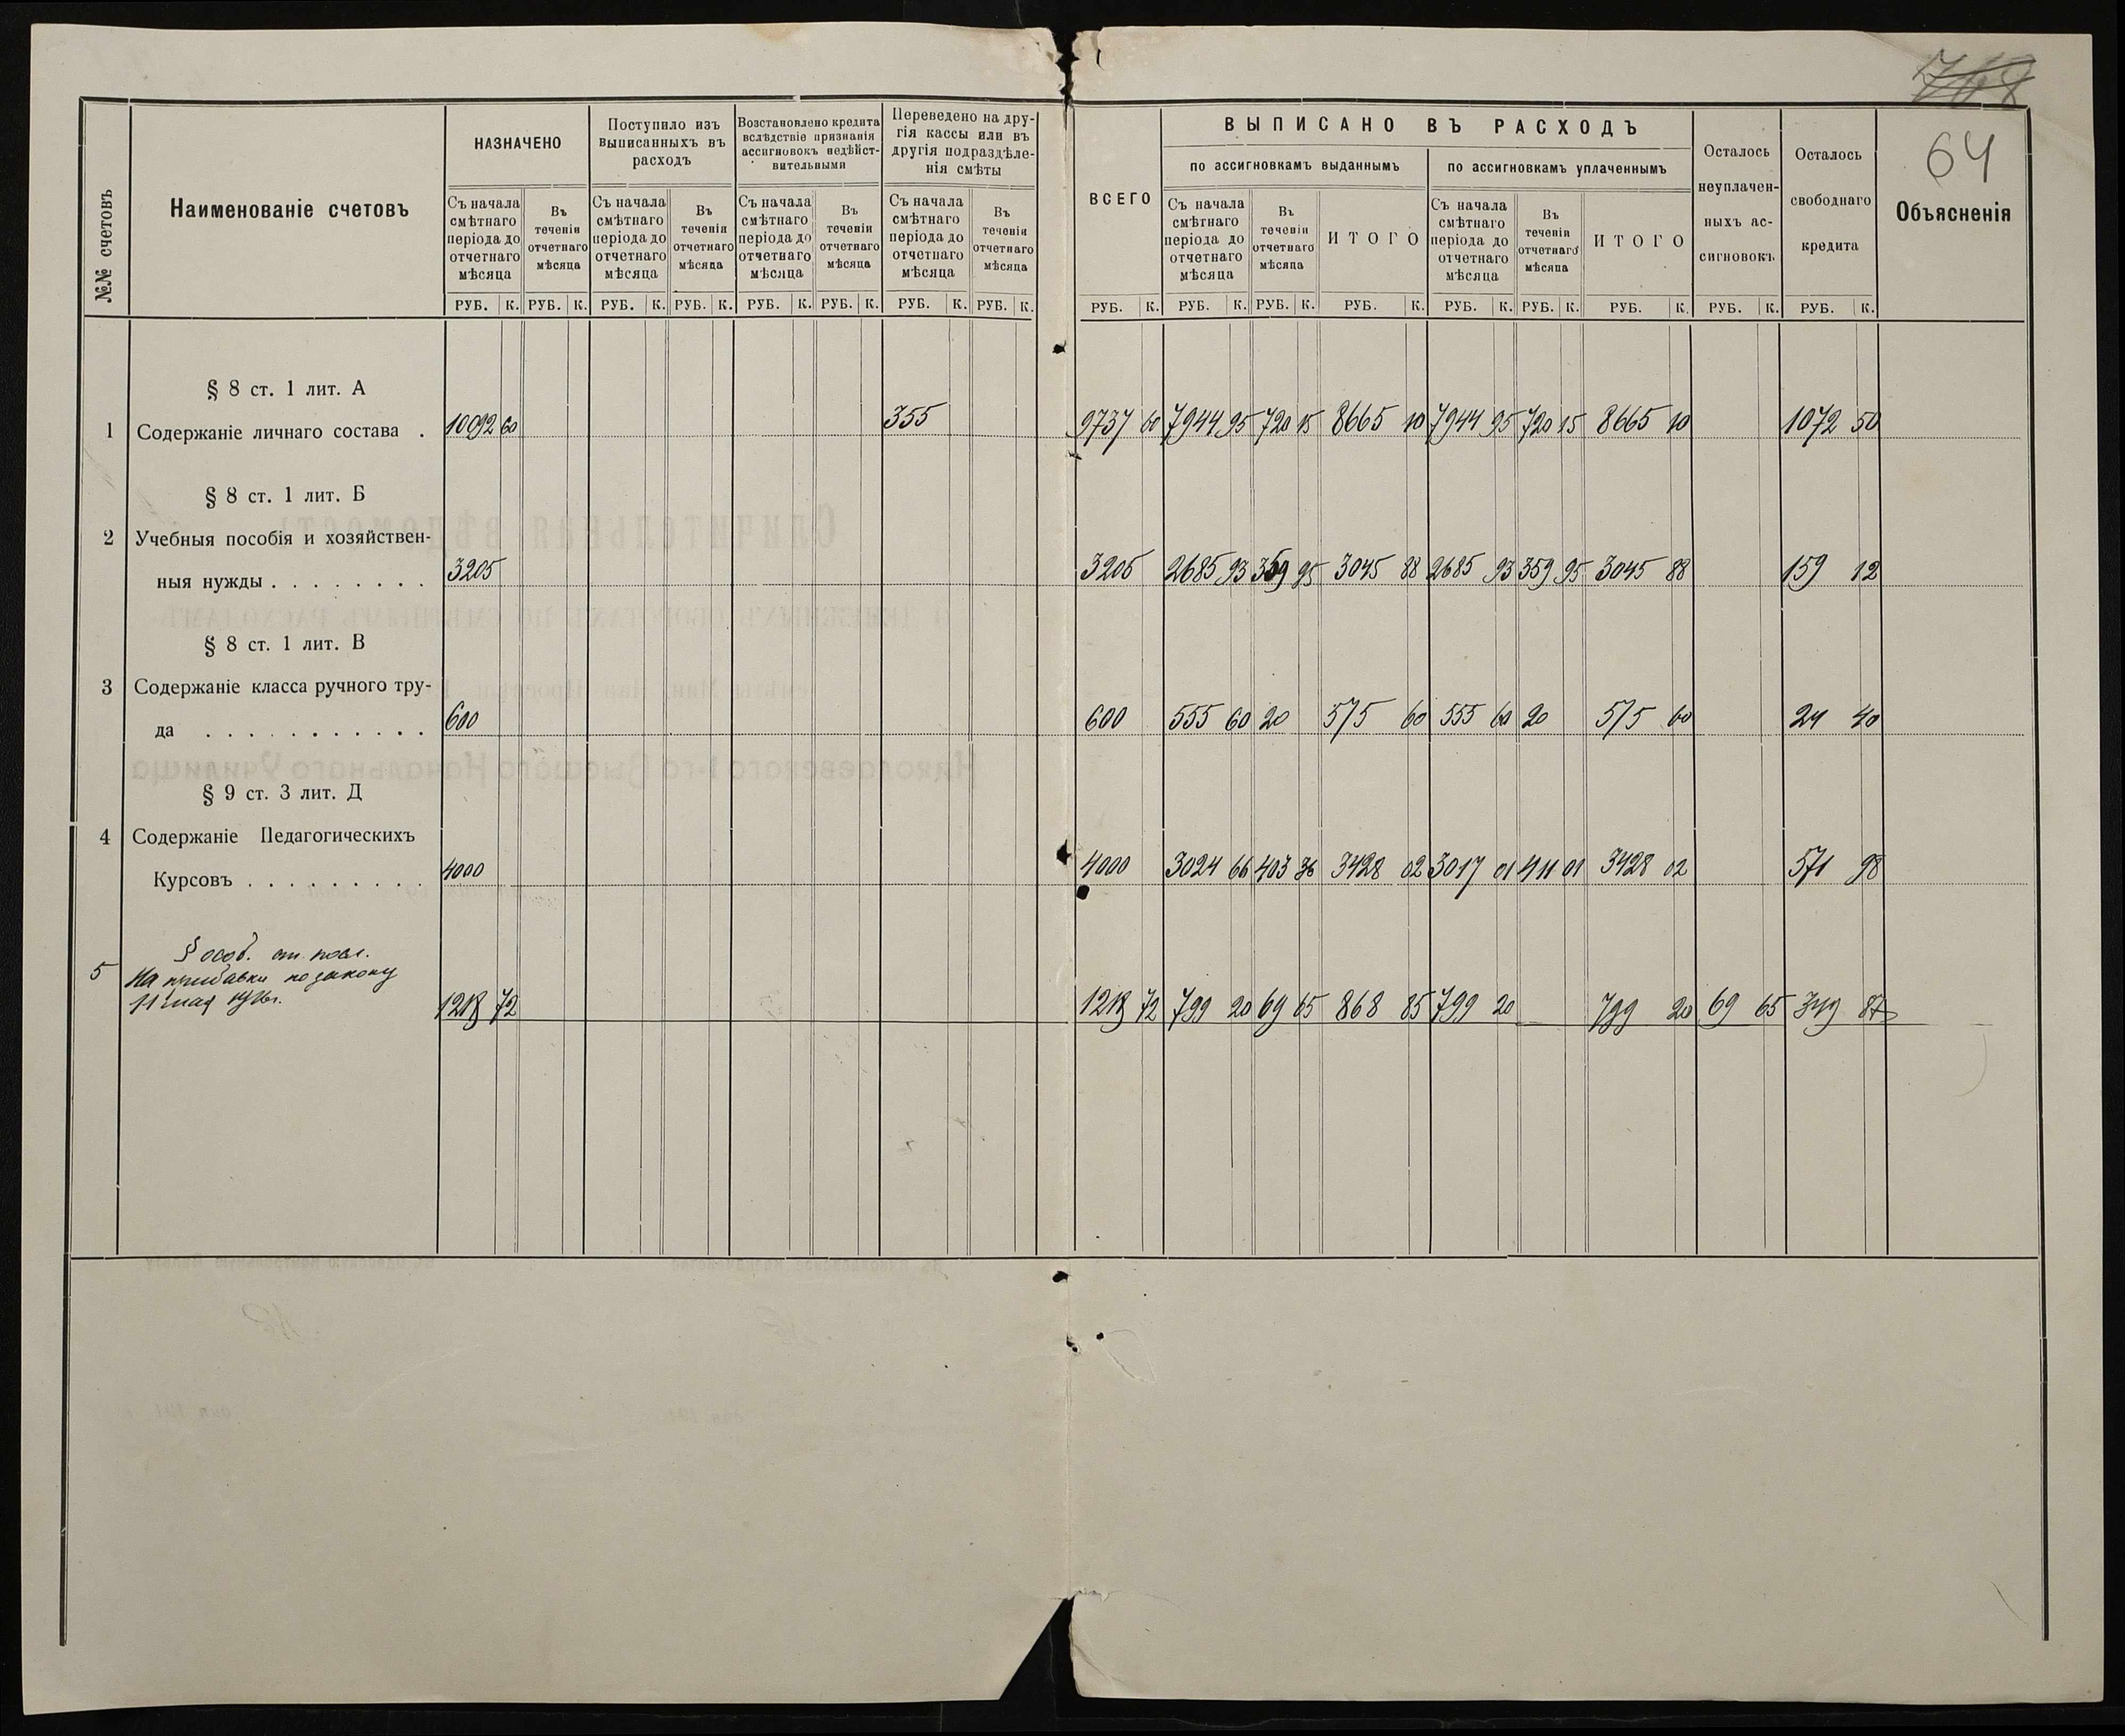 768
64
№№ счетовъ
Наименованіе счетовъ
НАЗНАЧЕНО
Поступило изъ
выписанныхъ въ
расходъ
Возстановлено кредита
вслѣдствіе признанія
ассигновокъ недѣйст-
вительными
Переведено на дру-
гія кассы или въ
другія подраздѣле-
нія смѣты
ВСЕГО
ВЫПИСАНО ВЪ РАСХОДЪ
по ассигновкамъ выданнымъ
по ассигновкамъ уплаченнымъ
Осталось
неуплачен-
ныхъ ас-
сигновокъ
Осталось
свободнаго
кредита
Объясненія
Съ начала
смѣтнаго
періода до
отчетнаго
мѣсяца
Въ
теченіи
отчетнаго
мѣсяца
Съ начала
смѣтнаго
періода до
отчетнаго
мѣсяца
Въ
теченіи
отчетнаго
мѣсяца
Съ начала
смѣтнаго
періода до
отчетнаго
мѣсяца
Въ
теченіи
отчетнаго
мѣсяца
Съ начала
смѣтнаго
періода до
отчетнаго
мѣсяца
Въ
теченіи
отчетнаго
мѣсяца
Съ начала
смѣтнаго
періода до
отчетнаго
мѣсяца
Въ
теченіи
отчетнаго
мѣсяца
ИТОГО
Съ начала
смѣтнаго
періода до
отчетнаго
мѣсяца
Въ
теченіи
отчетнаго
мѣсяца
ИТОГО
РУБ. К. РУБ. К. РУБ. К. РУБ. К. РУБ. К. РУБ. К. РУБ. К. РУБ. К. РУБ. К. РУБ. К. РУБ. К. РУБ. К. РУБ. К. РУБ. К. РУБ. К. РУБ. К. РУБ. К.
§ 8 ст. 1 лит. А
1 Содержаніе личнаго состава . 10092 60 355 9737 60 7944 95 720 15 8665 10 7944 95 720 15 8665 10 1072 50
§ 8 ст. 1 лит. Б
2 Учебныя пособія и хозяйствен-
ныя нужды . . . . . . . . 3205 3205 2685 93 359 95 3045 88 2685 93 359 95 3045 88 159 12
§ 8 ст. 1 лит. В
3 Содержаніе класса ручного тру-
да . . . . . . . . . . . 600 600 555 60 20 575 60 555 60 20 575 60 24 40
§ 9 ст. 3 лит. Д
4 Содержаніе Педагогическихъ
Курсовъ . . . . . . . . . 4000 4000 3024 66 403 36 3428 02 3017 01 411 01 3428 02 571 98
§ особ. ст. посл.
5 На прибавки по закону
11 мая 1916 г. 1218 72 1218 72 799 20 69 65 868 85 799 20 799 20 69 65 349 87